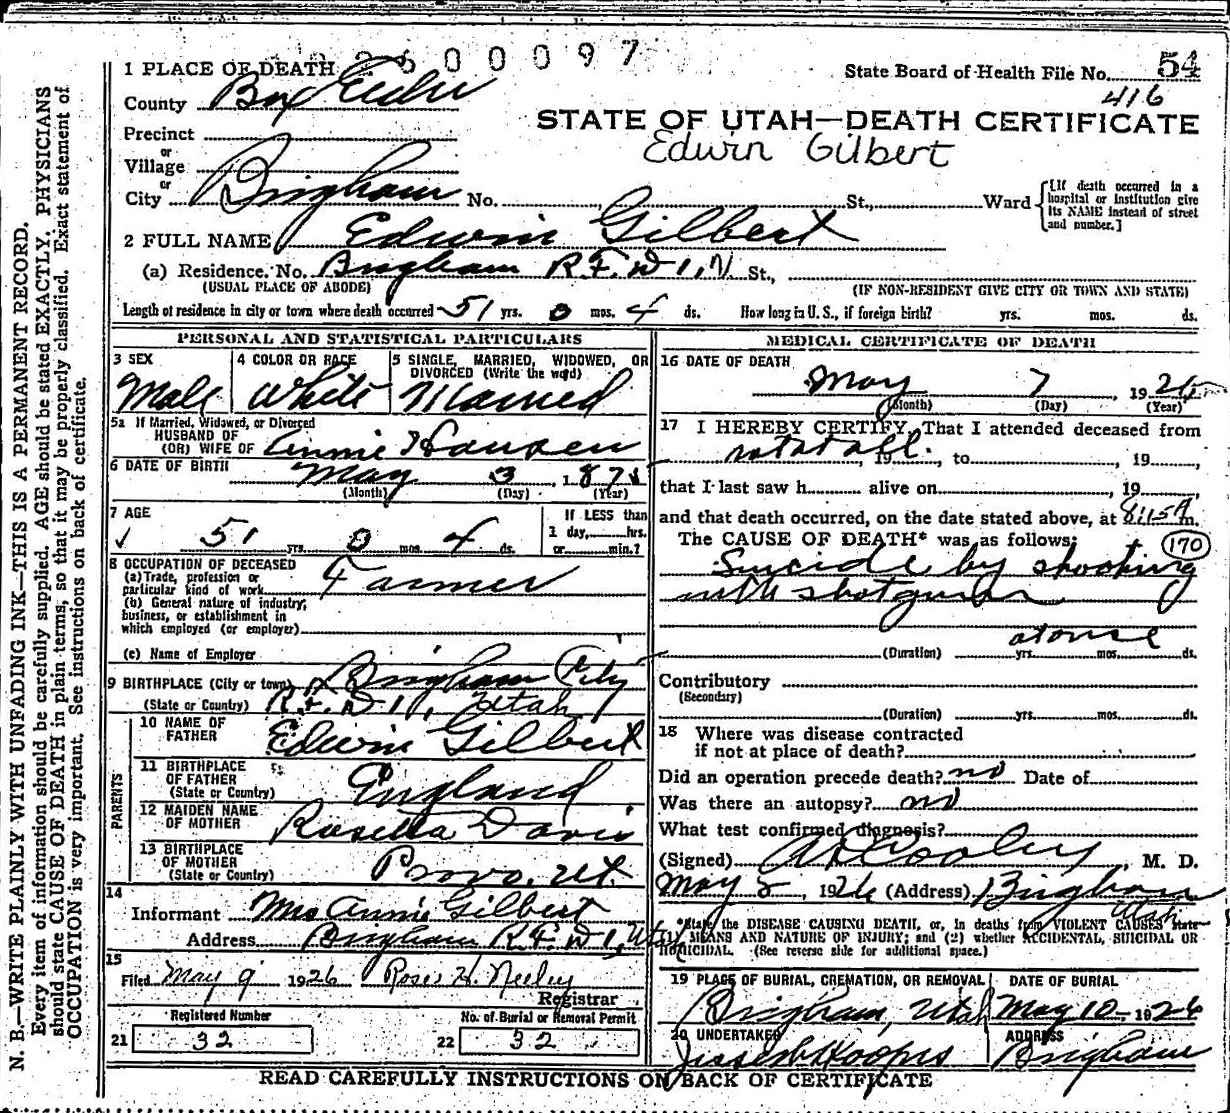 2600097
1 PLACE OF DEATH
State Board of Health File No. 54
416
County Box Elder
STATE OF UTAH—DEATH CERTIFICATE
Edwin Gilbert
Precinct
or
Village
or
City Brigham No. St., Ward
[If death occurred in a
hospital or institution give
its NAME instead of street
and number.]
2 FULL NAME Edwin Gilbert
(a) Residence. No. Brigham R.F.D 1, St.,
(USUAL PLACE OF ABODE) (IF NON-RESIDENT GIVE CITY OR TOWN AND STATE)
Length of residence in city or town where death occurred 51 yrs. 0 mos. 4 ds. How long in U. S., if foreign birth? yrs. mos. ds.
PERSONAL AND STATISTICAL PARTICULARS
3 SEX 4 COLOR OR RACE 5 SINGLE, MARRIED, WIDOWED, OR
DIVORCED (Write the word)
Male White Married
5a If Married, Widowed, or Divorced
HUSBAND OF
(OR) WIFE OF Annie Hansen
6 DATE OF BIRTH May 3, 187
(Month) (Day) (Year)
7 AGE
51 yrs. 0 mos. 4 ds.
If LESS than
1 day, hrs.
or min.?
8 OCCUPATION OF DECEASED
(a) Trade, profession or
particular kind of work Farmer
(b) General nature of industry,
business, or establishment in
which employed (or employer)
(c) Name of Employer
9 BIRTHPLACE (City or town) Brigham City
(State or Country) R.F.D 1, Utah
PARENTS
10 NAME OF
FATHER Edwin Gilbert
11 BIRTHPLACE
OF FATHER
(State or Country) England
12 MAIDEN NAME
OF MOTHER Rosetta Davis
13 BIRTHPLACE
OF MOTHER
(State or Country) Provo, Ut.
14
Informant Mrs Annie Gilbert
Address Brigham R.F.D 1, Utah
15
Filed May 9 1926 Rose H. Neeley
Registrar
Registered Number
21 32
No. of Burial or Removal Permit
22 32
MEDICAL CERTIFICATE OF DEATH
16 DATE OF DEATH
May 7, 1926
(Month) (Day) (Year)
17 I HEREBY CERTIFY, That I attended deceased from
not at all. 19, to, 19,
that I last saw h alive on, 19,
and that death occurred, on the date stated above, at 8:15 A m.
The CAUSE OF DEATH* was as follows:
170
Suicide by shooting
with shotgun
at once
(Duration) yrs. mos. ds.
Contributory
(Secondary)
(Duration) yrs. mos. ds.
18 Where was disease contracted
if not at place of death?
Did an operation precede death? no Date of
Was there an autopsy? no
What test confirmed diagnosis?
(Signed) Cooley, M. D.
May 1926 (Address) Brigham
Utah
*State the DISEASE CAUSING DEATH, or, in deaths from VIOLENT CAUSES state
MEANS AND NATURE OF INJURY; and (2) whether ACCIDENTAL, SUICIDAL OR
HOMICIDAL. (See reverse side for additional space.)
19 PLACE OF BURIAL, CREMATION, OR REMOVAL DATE OF BURIAL
Brigham, Utah May 10 1926
20 UNDERTAKER ADDRESS
Brigham
READ CAREFULLY INSTRUCTIONS ON BACK OF CERTIFICATE
N. B.—WRITE PLAINLY WITH UNFADING INK—THIS IS A PERMANENT RECORD.
Every item of information should be carefully supplied. AGE should be stated EXACTLY. PHYSICIANS
should state CAUSE OF DEATH in plain terms, so that it may be properly classified. Exact statement of
OCCUPATION is very important. See instructions on back of certificate.